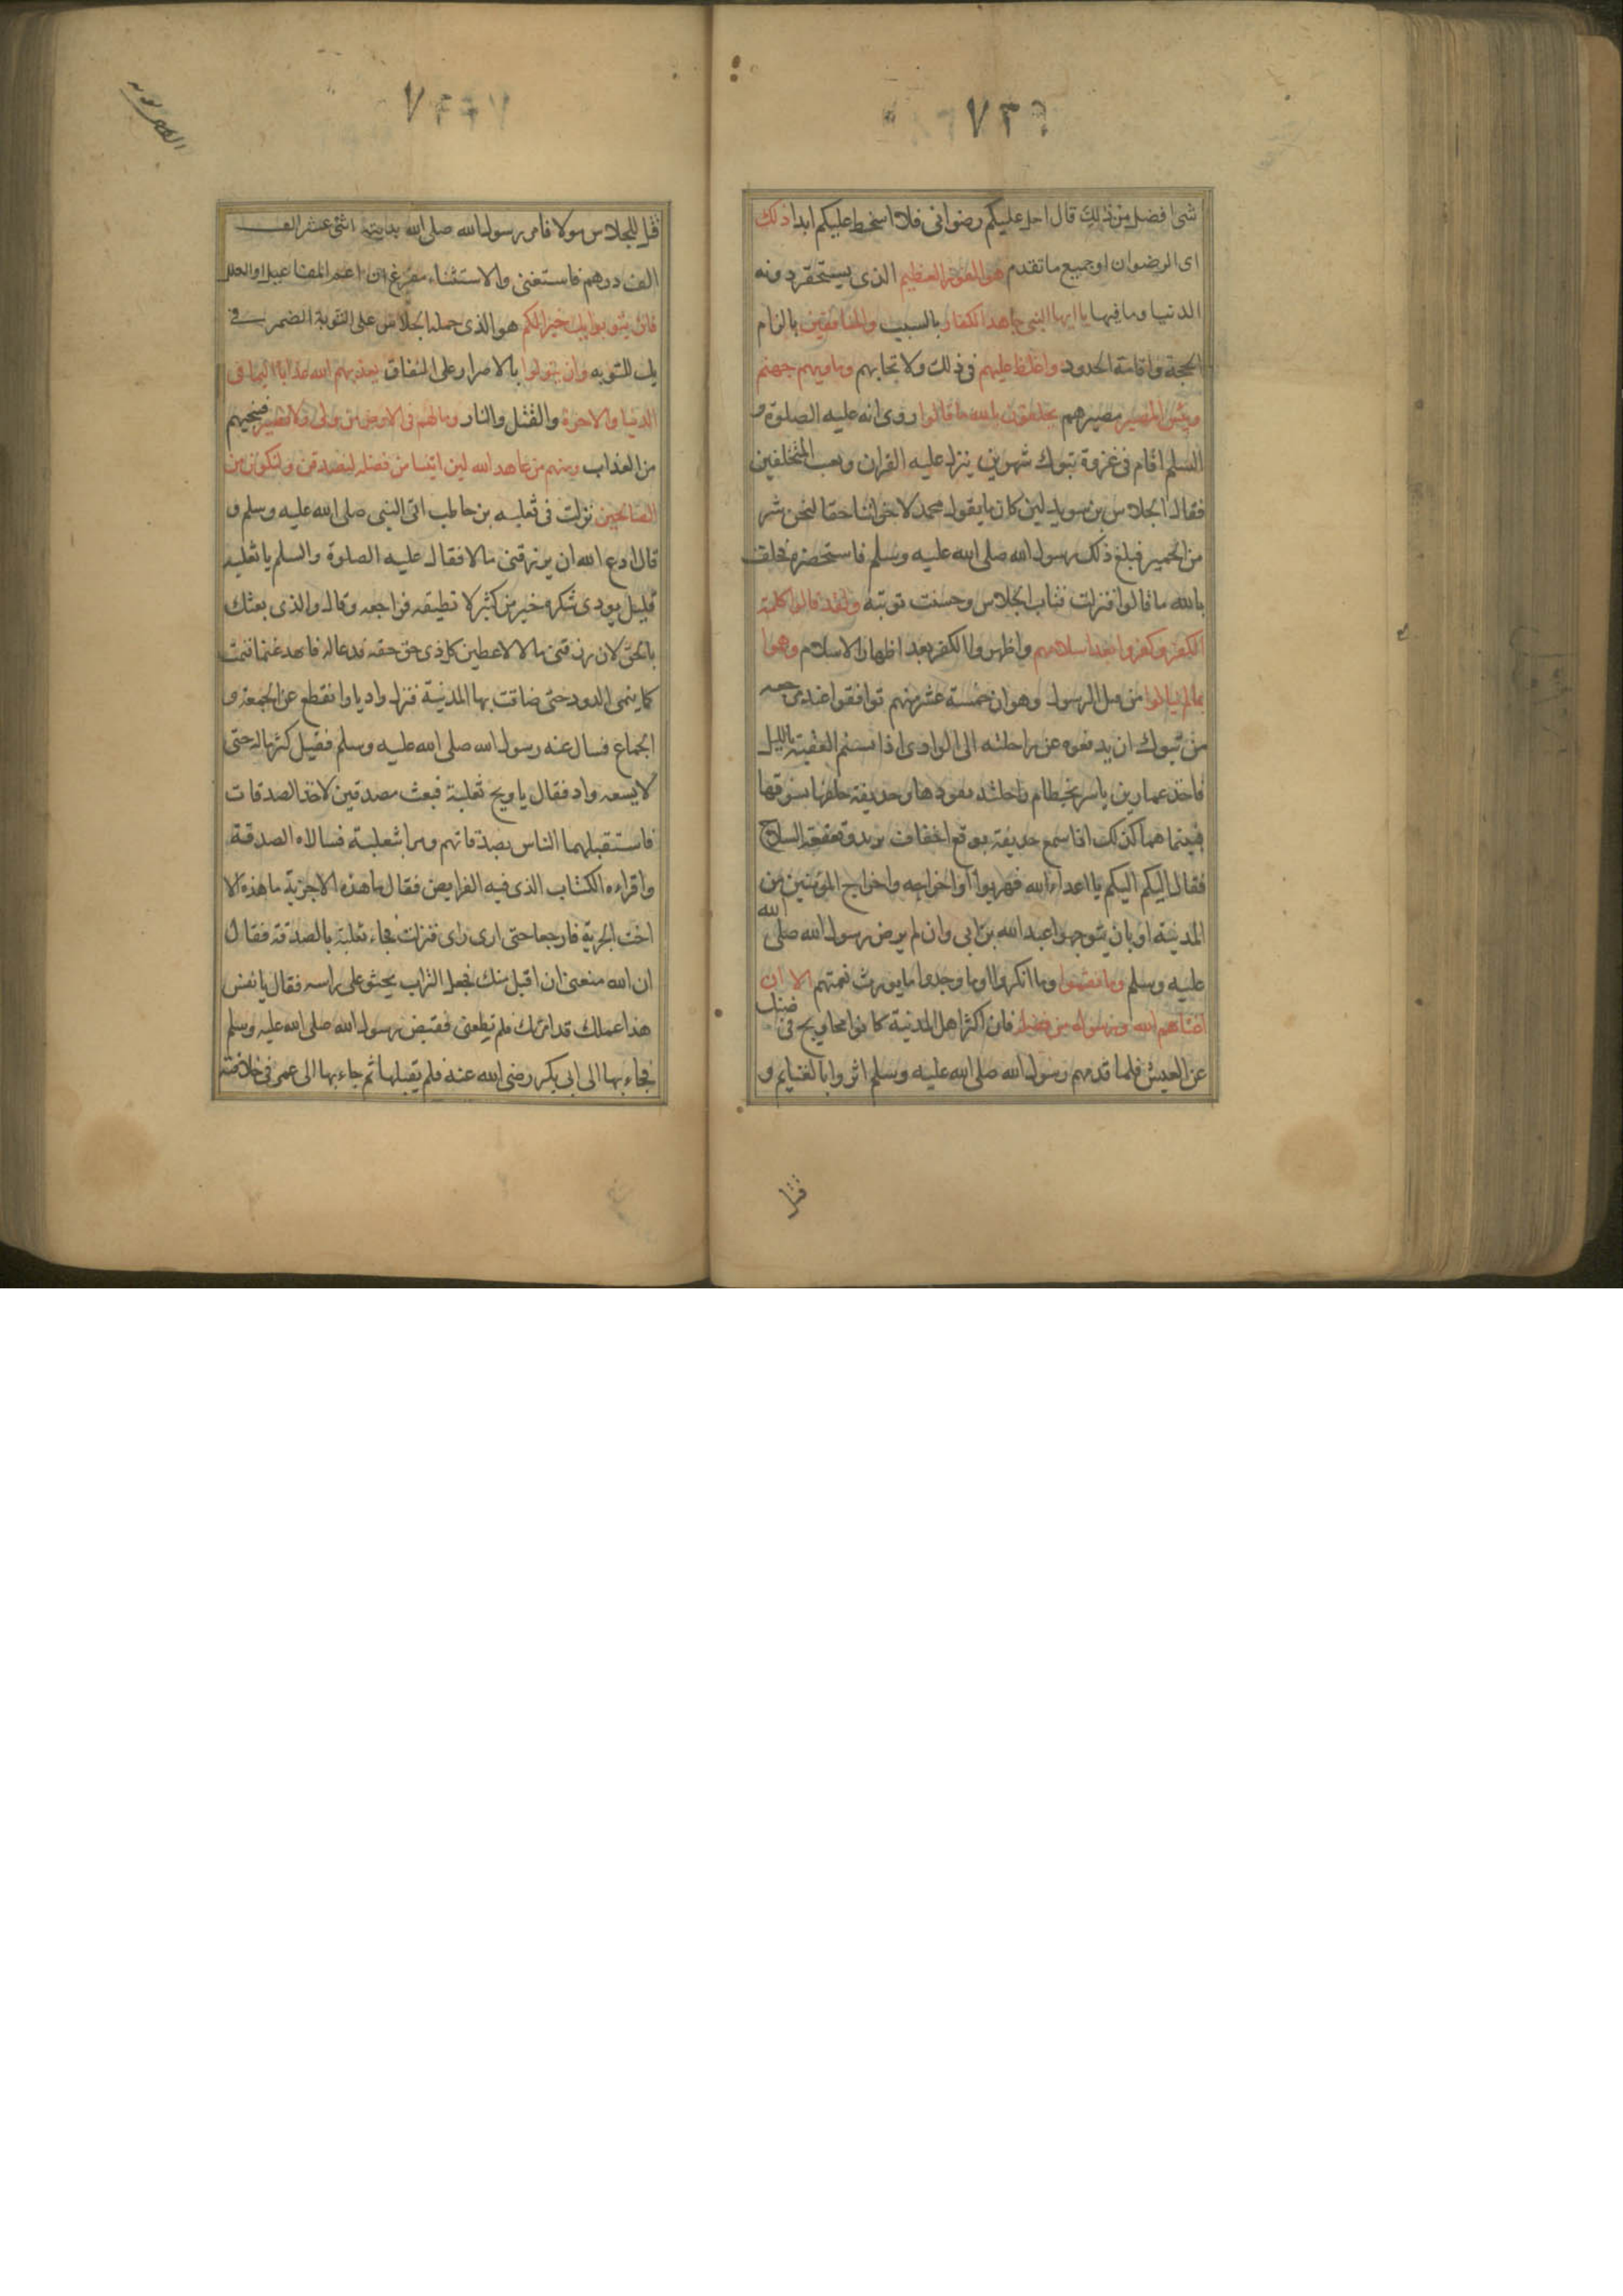 ٧٣
شئ افضل من ذلك قال احل عليكم رضوانى فلا اسخط عليكم ابدا ذلك
اى الرضوان او جميع ما تقدم هو الفوز العظيم الذى يستحقر دونه
الدنيا وما فيها يا ايها النبى جاهد الكفار بالسيف والمنافقين بالزام
الحجة واقامة الحدود واغلظ عليهم فى ذلك ولا تحابهم وماويهم جهنم
وبئس المصير مصيرهم يحلفون بالله ما قالوا روى انه عليه الصلوة و
السلم اقام فى غزوة تبوك شهرين ينزل عليه القران ويعيب المتخلفين
فقال الجلاس بن سويد لين كان ما يقول محمد لاخواننا حقا لنحن شر
من الحمير فبلغ ذلك رسول الله صلى الله عليه وسلم فاستحضره فحلف
بالله ما قالوا فنزلت فتاب الجلاس وحسنت توبته ولقد قالوا كلمة
الكفر وكفروا بعد اسلامهم واظهروا الكفر بعد اظهار الاسلام وهموا
بما لم ينالوا من الرسول وهو ان خمسة عشر منهم توافقوا عند
من تبوك ان يدفعوه عن راحلته الى الوادى اذا تسنم العقبة بالليل
فاخذ عمار بن ياسر بخطام راحلته يقودها وحذيفة خلفها يسوقها
فبينما هما كذلك اذا سمع حذيفة بوقع اخفاف وقعقعة السلاح
فقال اليكم اليكم يا اعداء الله فهربوا او اخراجه واخراج المؤمنين من
المدينة او بان يتوجوا عبد الله بن ابى وان لم يرض رسول الله صلى الله
عليه وسلم وما نقموا وما انكروا او ما وجدوا ما يورث نقمتهم الا ان
اغناهم الله ورسوله من فضله فان اكثر اهل المدينة كانوا محاويج فى ضنك
عن العيش فلما قدمهم رسول الله صلى الله عليه وسلم اثروا بالغنايم و
قتل
٧
قتل للجلاس مولا فامر رسول الله صلى الله بديته اثنى عشر الف
الف درهم فاستغنى والاستثناء مفرغ من اعم المفاعيل او العلل
فان يتوبوا يك خيرا لهم هو الذى حمل الجلاس على التوبة الضمير فى
يك للتوبه وان يتولوا بالاصرار على النفاق يعذبهم الله عذابا اليما فى
الدنيا والاخرة والقتل والنار وما لهم فى الارض من ولى ولا نصير فينجيهم
من العذاب ومنهم من عاهد الله لين اتينا من فضله لنصدقن ولنكونن من
الصالحين نزلت فى ثعلبه بن حاطب اتى النبى صلى الله عليه وسلم و
قال ادع الله ان يرزقنى مالا فقال عليه الصلوة والسلم يا ثعلبه
قليل يودى شكره خير من كثير لا تطيقه فراجعه وقال والذى بعثك
بالحق لان رزقنى مالا لاعطين كل ذى حق حقه فدعا له فاتخذ غنما فنمت
كما ينمى الدود حتى ضاقت بها المدينة فنزل واديا وانقطع عن الجمعة و
الجماع فسال عنه رسول الله صلى الله عليه وسلم فقيل كثر ماله حتى
لا يسعه واد فقال يا ويح ثعلبة فبعث مصدقين لاخذ الصدقات
فاستقبلهما الناس بصدقاتهم ومرا بثعلبة فسالاه الصدقة
واقراءه الكتاب الذى فيه الفرايض فقال ما هذه الا جزية ما هذه الا
اخت الجزية فارجعا حتى ارى راى فنزلت فجاء ثعلبة بالصدقة فقال
ان الله منعنى ان اقبل منك فجعل التراب يحثو على راسه فقال يا نفس
هذا عملك قد امرتك فلم تطعنى فقبض رسول الله صلى الله عليه وسلم
فجاء بها الى ابى بكر رضى الله عنه فلم يقبلها ثم جاء بها الى عمر فى خلافته